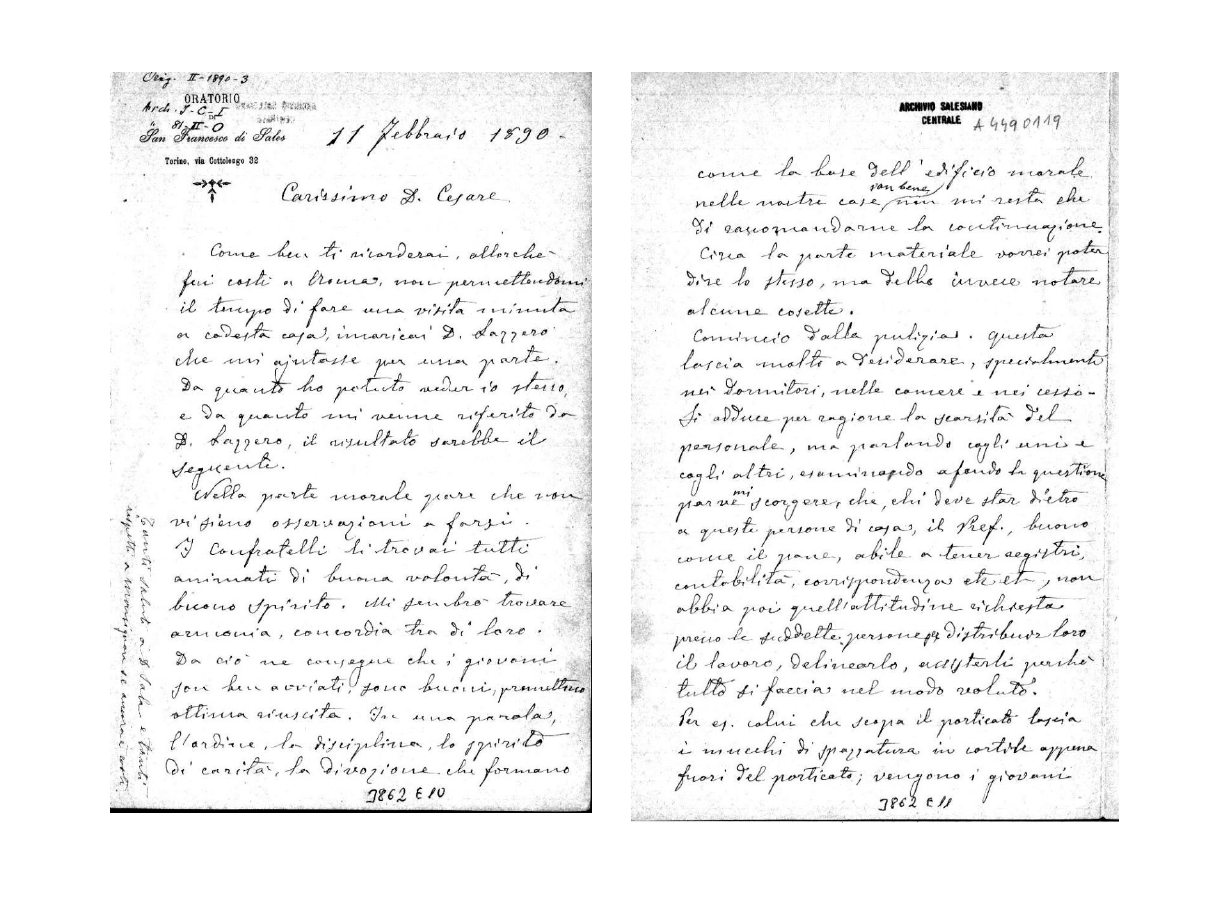 Orig. II-1890-3
ORATORIO
Arch. I-C-I
DI
" 81-II-O
San Francesco di Sales
Torino, via Cottolengo 32
11 Febbraio 1890 -
Carissimo D. Cesare
Come ben ti ricorderai, allorchè
fui costì a Roma, non permettendomi
il tempo di fare una visita minuta
a codesta casa, incaricai D. Lazzero
che mi ajutasse per una parte.
Da quanto ho potuto veder io stesso,
e da quanto mi venne riferito da
D. Lazzero, il risultato sarebbe il
seguente.
Nella parte morale pare che non
vi sieno osservazioni a farsi.
I Confratelli li trovai tutti
animati di buona volontà, di
buono spirito. Mi sembrò trovare
armonia, concordia tra di loro.
Da ciò ne consegue che i giovani
son ben avviati, sono buoni, promettono
ottima riuscita. In una parola,
l'ordine, la disciplina, lo spirito
di carità, la divozione che formano
Tanti saluti a D. Sala e tanti
rispetti a Monsignore se ancora è costì
3862 E 10
ARCHIVIO SALESIANO
CENTRALE
A 4490119
come la base dell'edificio morale
nelle nostre case, van bene, non mi resta che
di raccomandarne la continuazione.
Circa la parte materiale vorrei poter
dire lo stesso, ma debbo invece notare
alcune cosette.
Comincio dalla pulizia. Questa
lascia molto a desiderare, specialmente
nei dormitori, nelle camere e nei cessi -
Si adduce per ragione la scarsità del
personale, ma parlando cogli uni e
cogli altri, esaminando a fondo la questione
parvemi scorgere, che, chi deve star dietro
a queste persone di casa, il Pref., buono
come il pane, abile a tener registri,
contabilità, corrispondenza etc etc, non
abbia poi quell'attitudine richiesta
presso le suddette persone per distribuir loro
il lavoro, delinearlo, assisterli perchè
tutto si faccia nel modo voluto.
Per es. colui che scopa il porticato lascia
i mucchi di spazzatura in cortile appena
fuori del porticato; vengono i giovani
3862 E 11